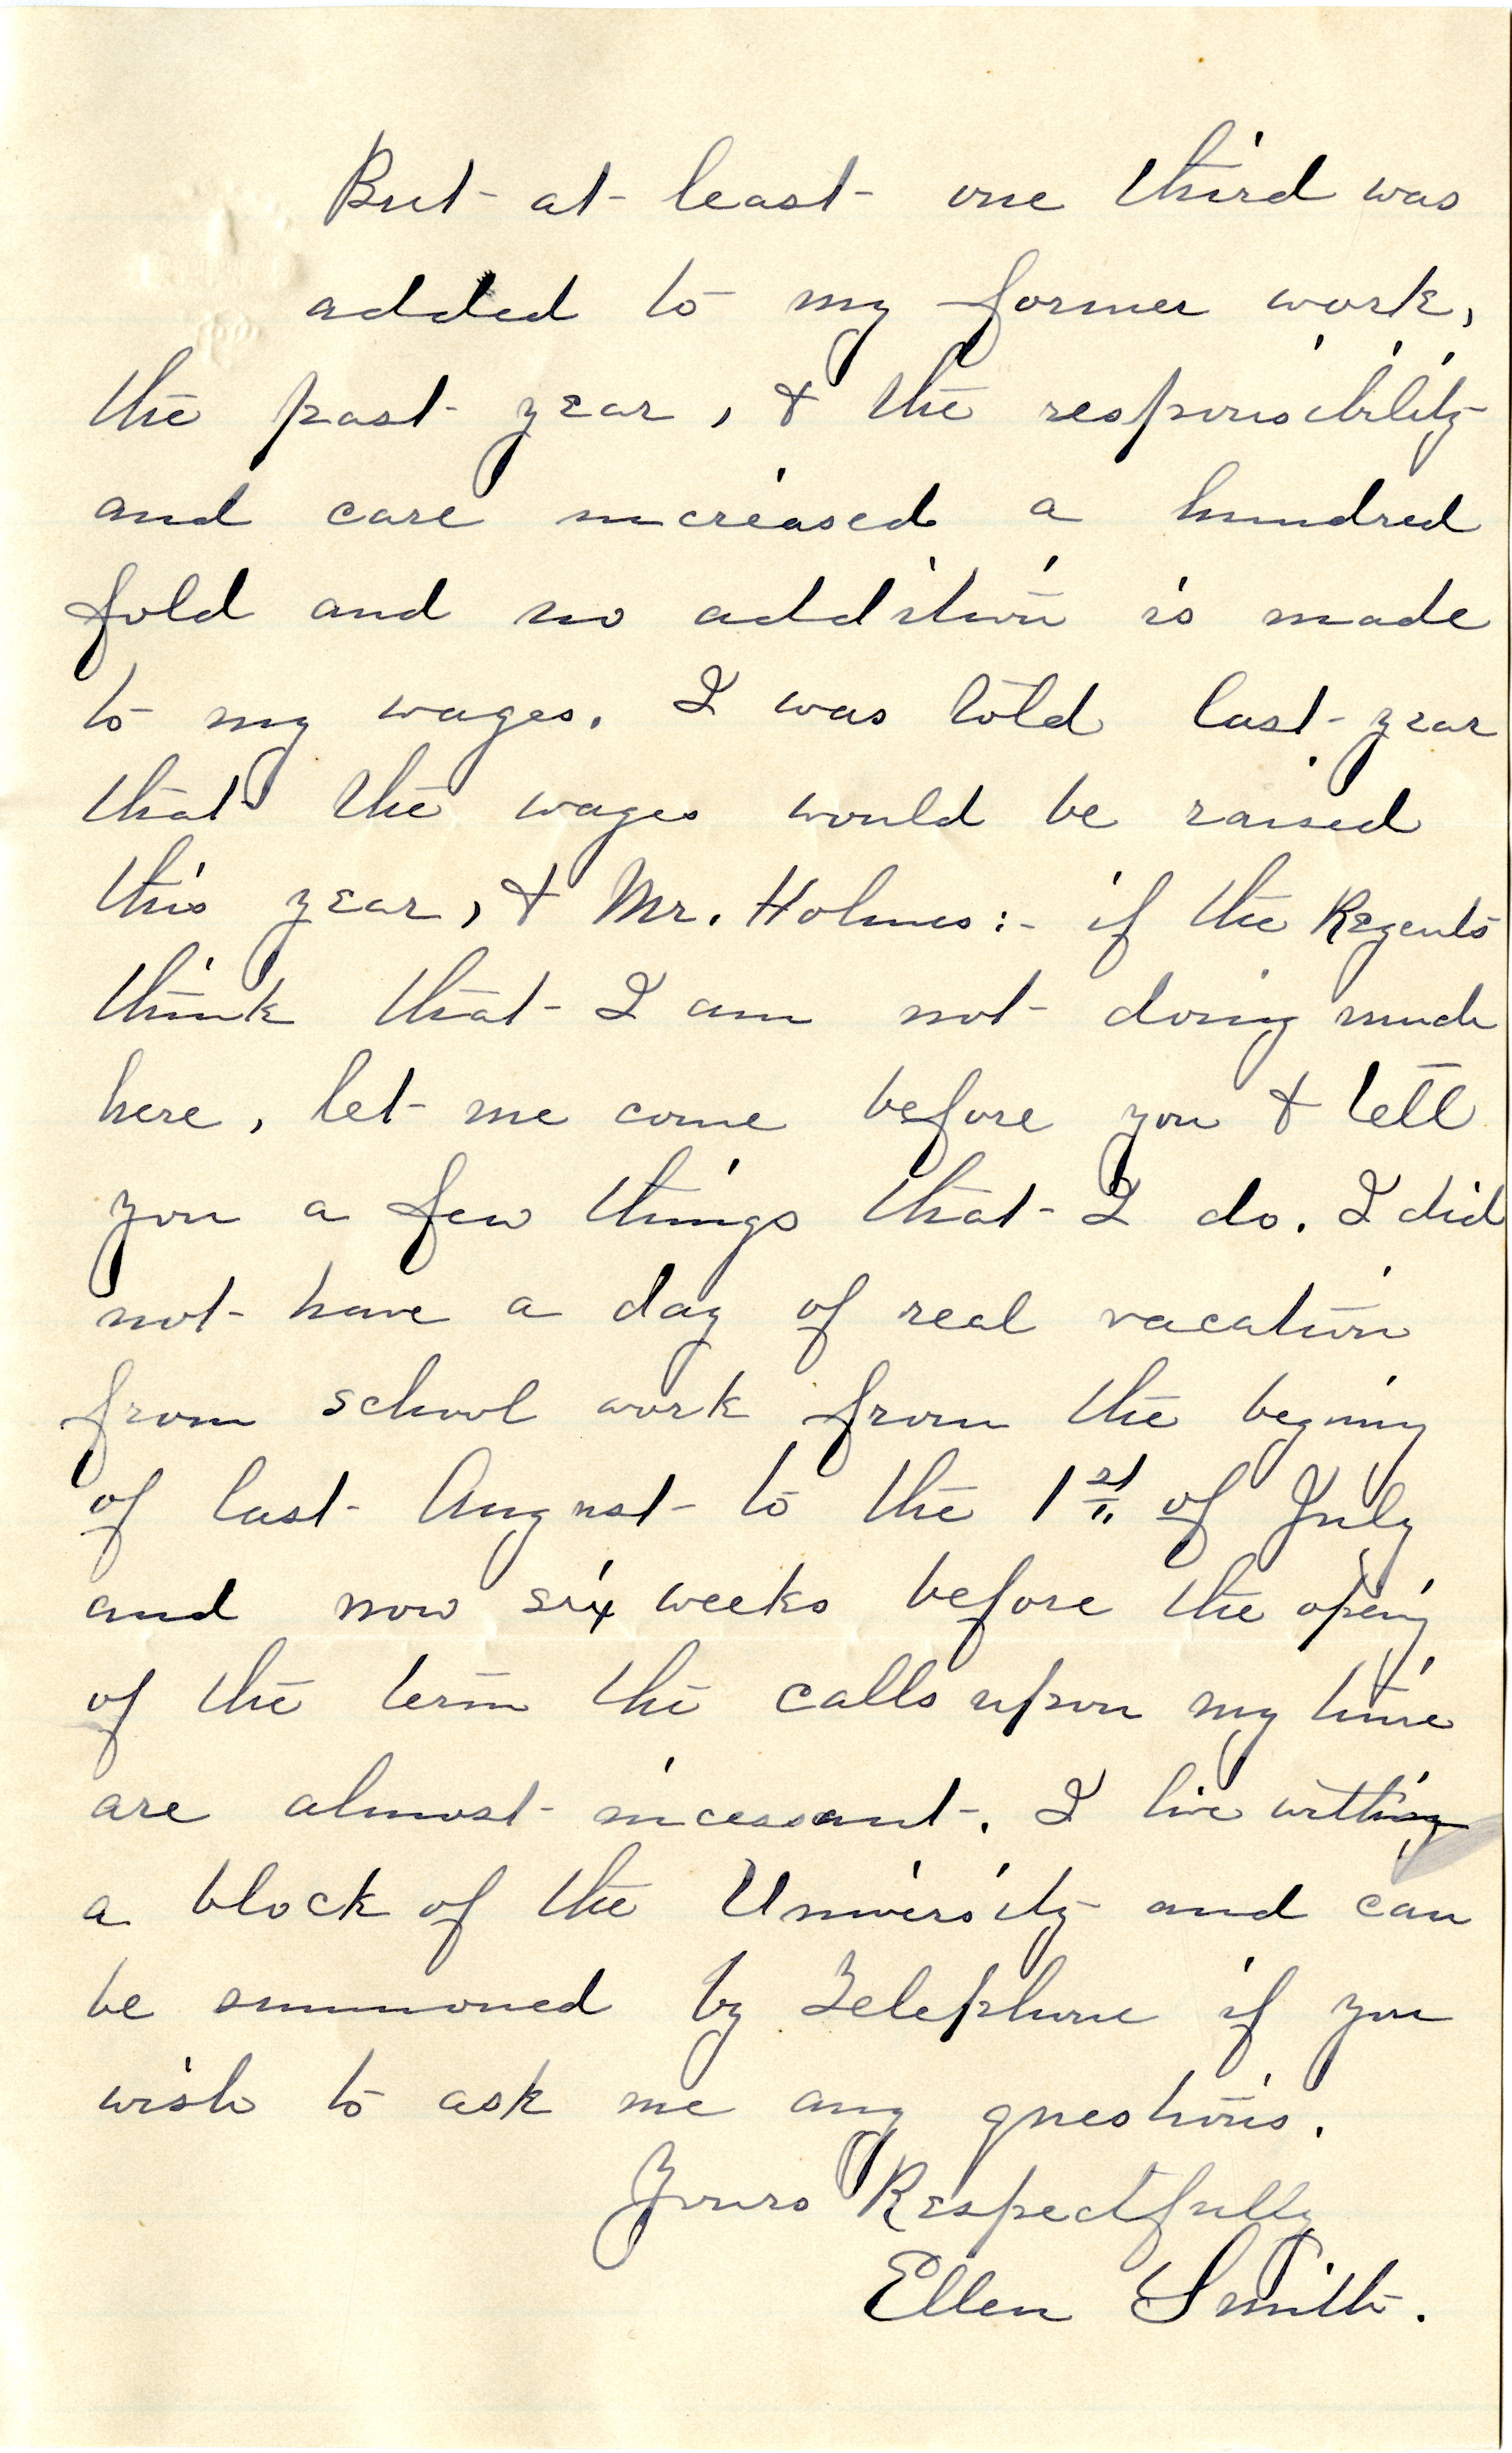 But at least one third was
added to my former work,
the past year, & the responsibility
and care increased a hundred
fold and no addition is made
to my wages. I was told last year
that the wages would be raised
this year, & Mr. Holmes:- if the Regents
think that I am not doing much
here, let me come before you & tell
you a few things that I do. I did
not have a day of real vacation
from school work from the begining
of last August to the 1st of July
and now six weeks before the opening
of the term the calls upon my time
are almost incessant. I live within
a block of the University and can
be summoned by Telephone if you
wish to ask me any questions.
Yours Respectfully
Ellen Smith.